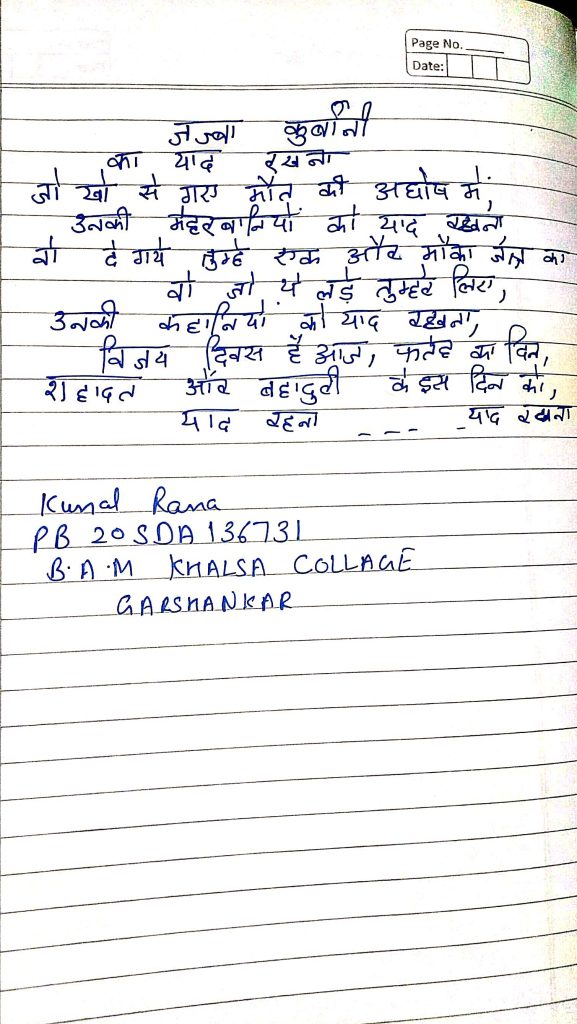 Page No.
Date:
जज्बा कुर्बानी
का याद रखना
जो खो से गए मौत की अघोष में,
उनकी मेहरबानियों को याद रखना,
वो दे गये तुम्हे एक और मौका का
वो जो ये लड़े तुम्हरे लिए,
उनकी कहानियों को याद रखना,
विजय दिवस है आज, फतेह का दिन,
शहादत और बहादुरी के इस दिन को,
याद रहना _ _ _ _ याद रखना
Kunal Rana
PB 20 SDA 136731
B.A.M KHALSA COLLAGE
GARSHANKAR